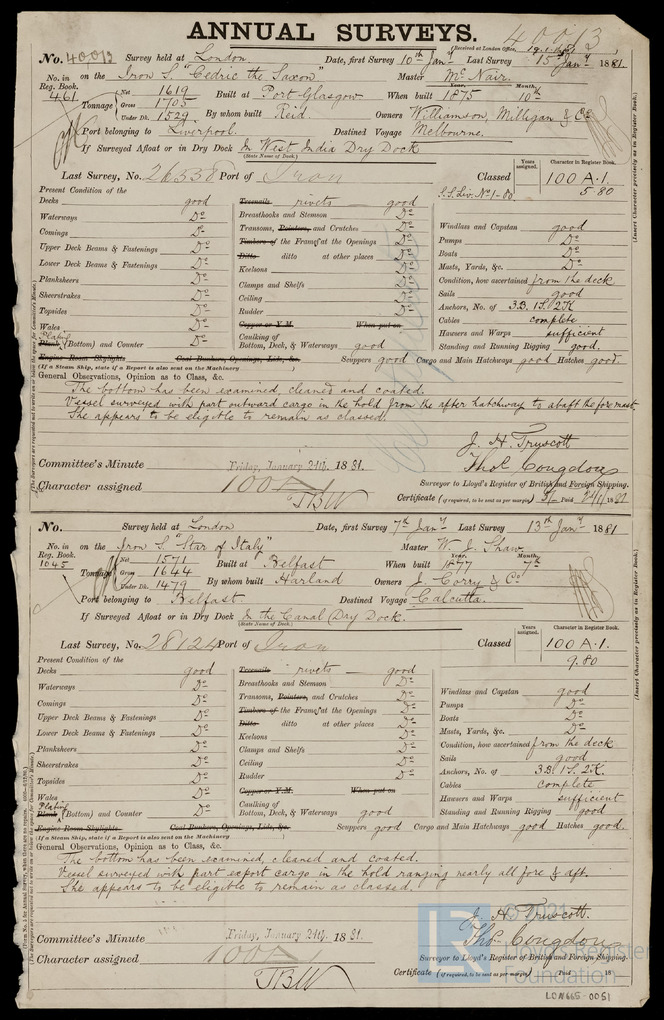 ANNUAL SURVEYS.
40013
(Received at London Office,
No. 40013 Survey held at London Date, first Survey 10th Jany Last Survey 15th Jany 1881
No. in on the Iron S. "Cedric the Saxon" Master Mc Nair.
Reg. Book.
461 Tonnage Net 1619 Built at Port Glasgow When built Year. 1875 Month. 10th
Gross 1705
Under Dk. 1529 By whom built Reid. Owners Williamson, Milligan & Co
Port belonging to Liverpool. Destined Voyage Melbourne.
If Surveyed Afloat or in Dry Dock In West India Dry Dock
(State Name of Dock.)
Last Survey, No. 26338 Port of Iron Classed Years assigned. Character in Register Book.
S.S. Liv. No 1-80 100 A.1.
5.80
Present Condition of the
Decks good Treenails rivets good
Waterways Do Breasthooks and Stemson Do
Comings Do Transoms, Pointers, and Crutches Do Windlass and Capstan good
Upper Deck Beams & Fastenings Do Timbers of the Frames at the Openings Do Pumps Do
Lower Deck Beams & Fastenings Do Ditto ditto at other places Do Boats Do
Planksheers Do Keelsons Do Masts, Yards, &c. Do
Sheerstrakes Do Clamps and Shelfs Do Condition, how ascertained from the deck
Topsides Do Ceiling Do Sails good
Wales Do Rudder Do Anchors, No. of 3B. 1S. 2K
Plating Copper or Y.M. When put on Cables complete
Plank (Bottom) and Counter Do Caulking of Bottom, Deck, & Waterways good Hawsers and Warps sufficient
Standing and Running Rigging good.
Engine Room Skylights Coal Bunkers, Openings, Lids, &c. Scuppers good Cargo and Main Hatchways good Hatches good.
(If a Steam Ship, state if a Report is also sent on the Machinery
General Observations, Opinion as to Class, &c.
The bottom has been examined, cleaned and coated.
Vessel surveyed with part outward cargo in the hold from the after hatchway to abaft the foremast.
She appears to be eligible to remain as classed.
J. H. Truscott
Thos Congdon
Committee's Minute Friday, January 21th. 1881.
Surveyor to Lloyd's Register of British and Foreign Shipping.
Character assigned 100 A1
TBW
Certificate (if required, to be sent as per margin)
No. Survey held at London Date, first Survey 7th Jany Last Survey 13th Jany 1881
No. in on the Iron S. "Star of Italy" Master W. J. Shaw
Reg. Book.
1045 Tonnage Net 1571 Built at Belfast When built Year. 1877 Month. 7th
Gross 1644
Under Dk. 1479 By whom built Harland Owners J. Corry & Co
Port belonging to Belfast Destined Voyage Calcutta.
If Surveyed Afloat or in Dry Dock In the Canal Dry Dock.
(State Name of Dock.)
Last Survey, No. 28124 Port of Iron Classed Years assigned. Character in Register Book.
100 A.1.
9.80
Present Condition of the
Decks good Treenails rivets good
Waterways Do Breasthooks and Stemson Do
Comings Do Transoms, Pointers, and Crutches Do Windlass and Capstan good
Upper Deck Beams & Fastenings Do Timbers of the Frames at the Openings Do Pumps Do
Lower Deck Beams & Fastenings Do Ditto ditto at other places Do Boats Do
Planksheers Do Keelsons Do Masts, Yards, &c. Do
Sheerstrakes Do Clamps and Shelfs Do Condition, how ascertained from the deck
Topsides Do Ceiling Do Sails good
Wales Do Rudder Do Anchors, No. of 3B. 1S. 2K.
Plating Copper or Y.M. When put on Cables complete
Plank (Bottom) and Counter Do Caulking of Bottom, Deck, & Waterways good Hawsers and Warps sufficient
Standing and Running Rigging good
Engine Room Skylights Coal Bunkers, Openings, Lids, &c. Scuppers good Cargo and Main Hatchways good Hatches good.
(If a Steam Ship, state if a Report is also sent on the Machinery
General Observations, Opinion as to Class, &c.
The bottom has been examined, cleaned and coated.
Vessel surveyed with part export cargo in the hold ranging nearly all fore & aft.
She appears to be eligible to remain as classed.
J. H. Truscott.
Thos Congdon
Committee's Minute Friday, January 21th. 1881.
Surveyor to Lloyd's Register of British and Foreign Shipping.
Character assigned 100 A1
TBW
Certificate (if required, to be sent as per margin) Paid 18
© 2021
Lloyd's Register
Foundation
LON665-0051
(Insert Character precisely as in Register Book.)
(Insert Character precisely as in Register Book.)